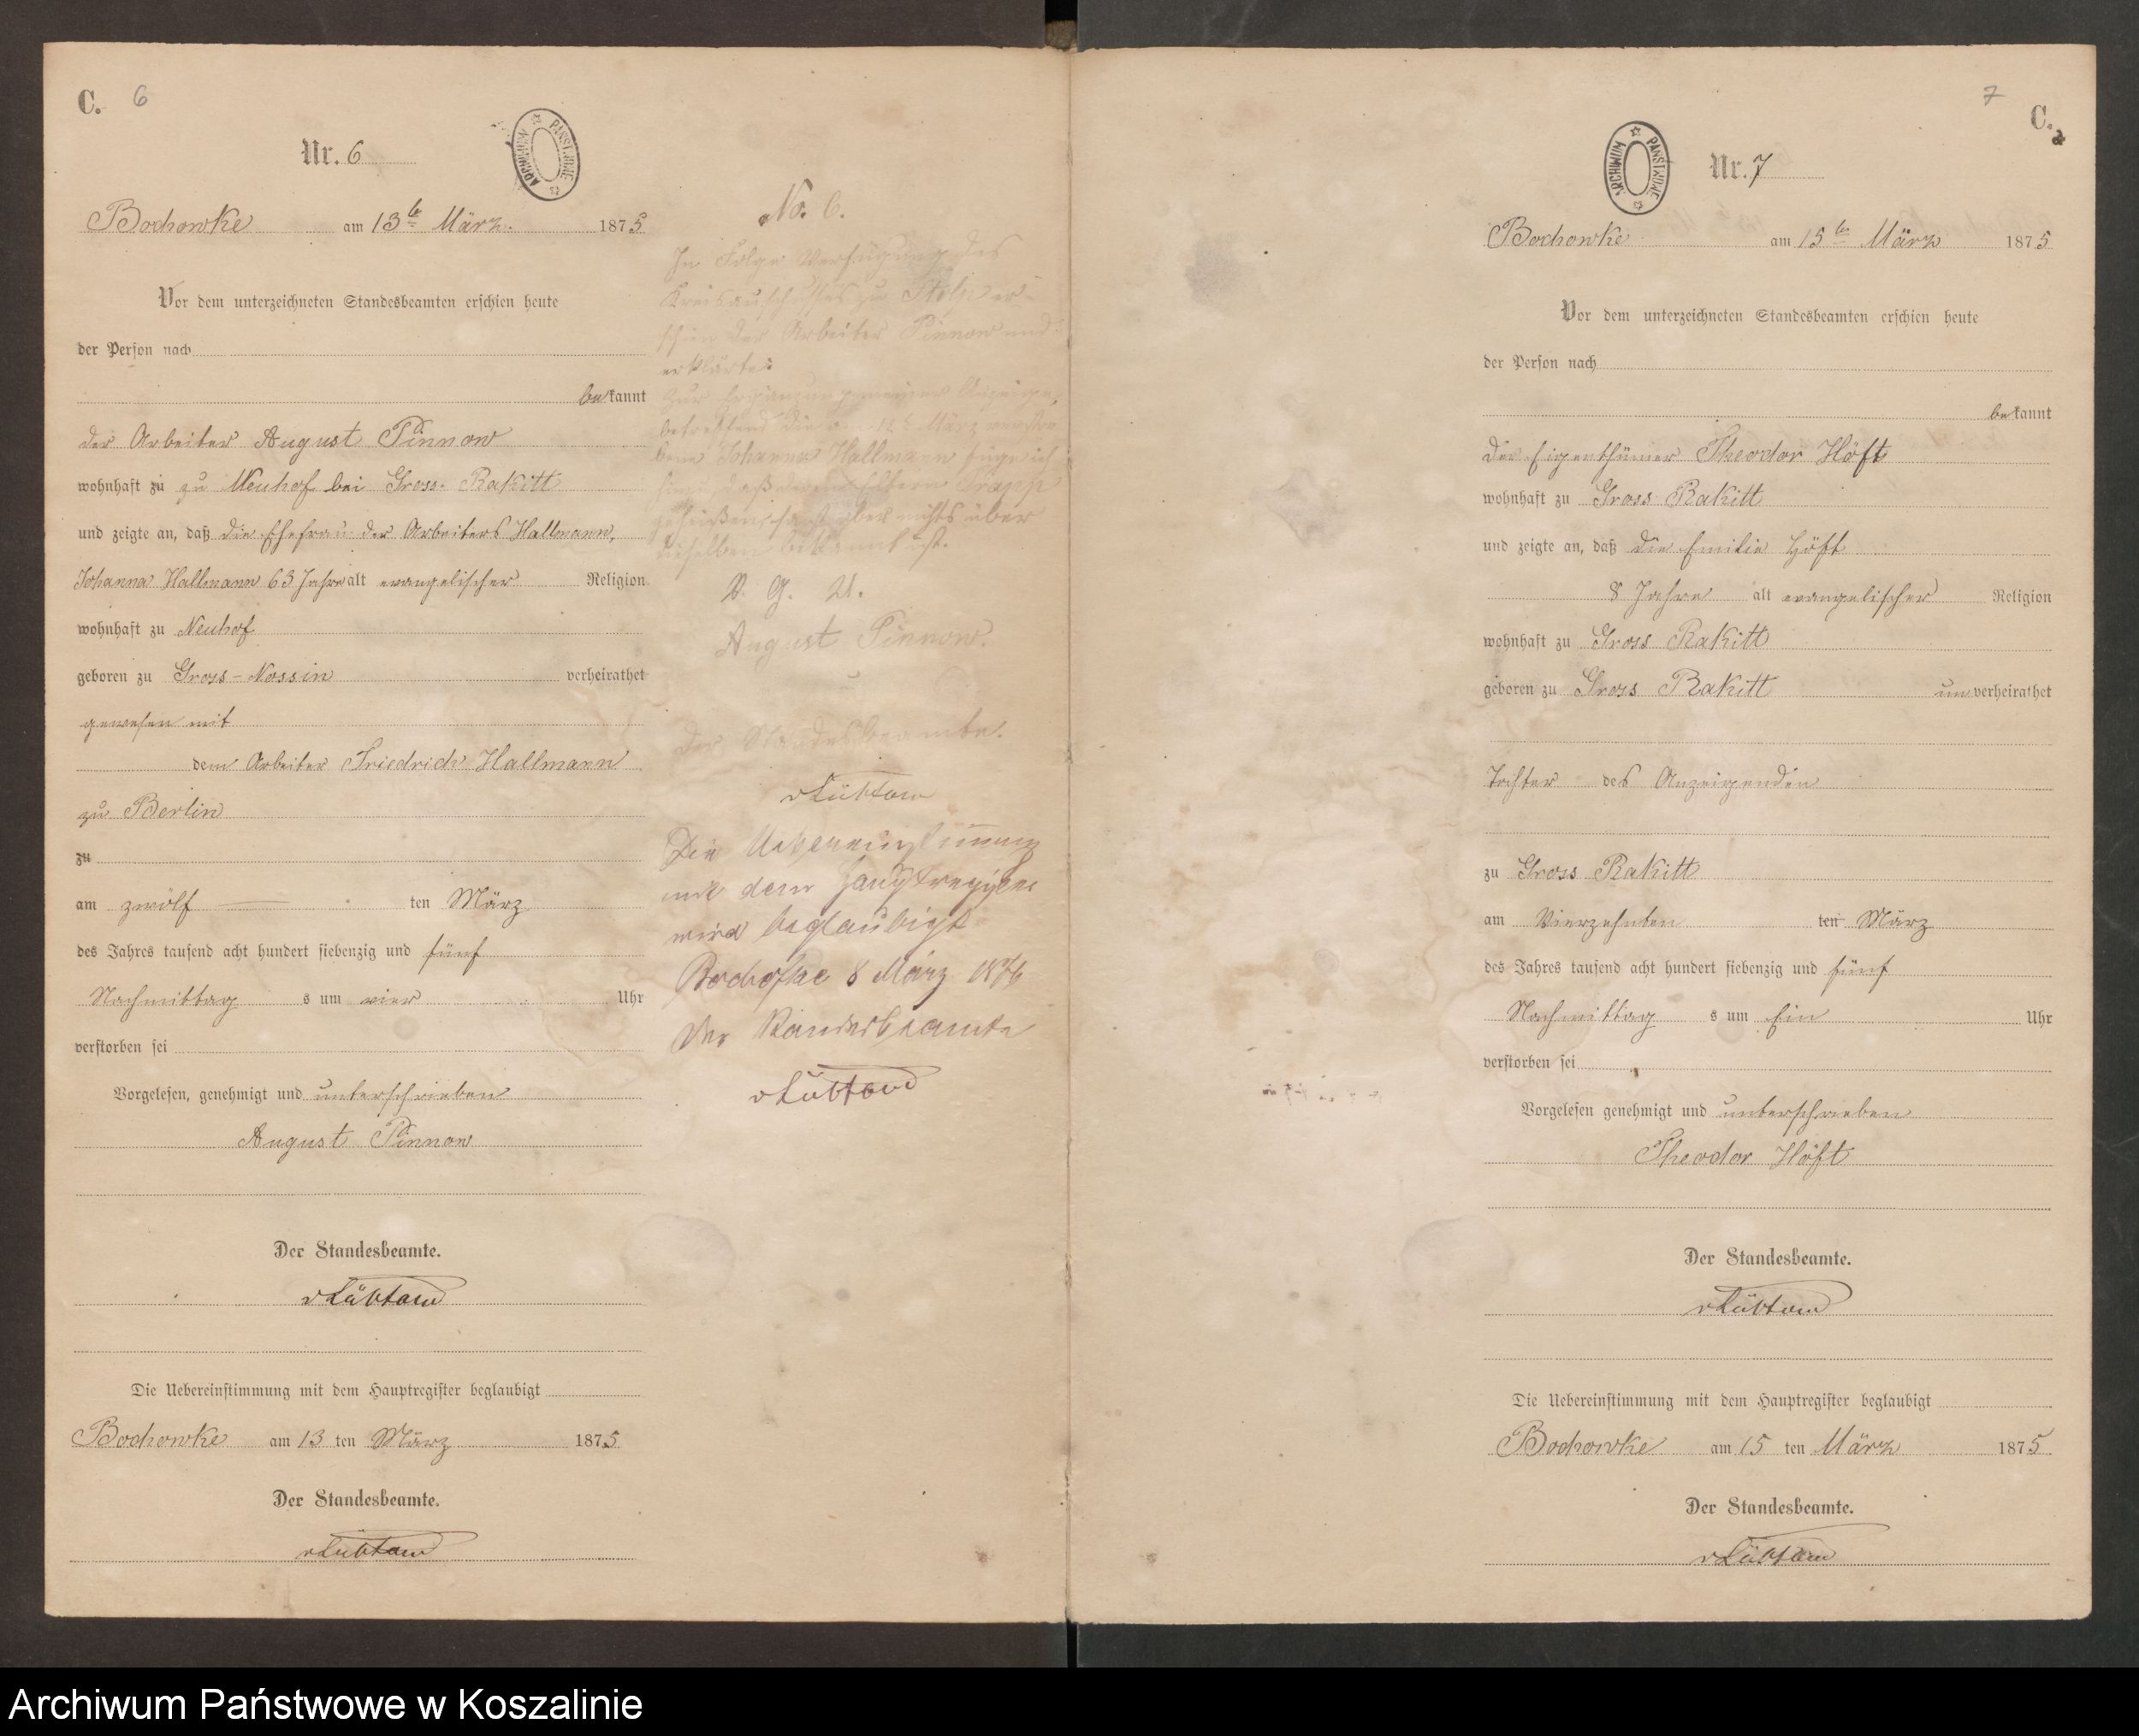 C. 6
Nr. 6
ARCHIWUM PAŃSTWOWE
Bochowke am 13te März 1875
Vor dem unterzeichneten Standesbeamten erschien heute
der Person nach
bekannt
der Arbeiter August Pinnow
wohnhaft zu zu Neuhof bei Gross-Rakitt
und zeigte an, daß die Ehefrau des Arbeiters Hallmann,
Johanna Hallmann 63 Jahre alt evangelischer Religion
wohnhaft zu Neuhof
geboren zu Gross-Nossin verheirathet
gewesen mit
dem Arbeiter Friedrich Hallmann
zu Berlin
zu
am zwölf ten März
des Jahres tausend acht hundert siebenzig und fünf
Nachmittags um vier Uhr
verstorben sei
Vorgelesen, genehmigt und unterschrieben
August Pinnow
Der Standesbeamte.
vLübtow
Die Uebereinstimmung mit dem Hauptregister beglaubigt
Bochowke am 13 ten März 1875
Der Standesbeamte.
vLübtow
No. 6.
In Folge Verfügung des
Kreisausschusses zu Stolp er-
schien der Arbeiter Pinnow und
erklärte:
Zur Ergänzung meiner Anzeige,
betreffend die am 12t März verstor
bene Johanna Hallmann füge ich
hinzu, daß deren Eltern Trapp
geheißen, sonst aber nichts über
dieselben bekannt ist.
V. G. U.
August Pinnow.
Der Standesbeamte.
vLübtow
Die Uebereinstimmung
mit dem Hauptregister
wird beglaubigt
Bochofke 8 März 1876
Der Standesbeamte
vLübtow
7
C.
Nr. 7
ARCHIWUM PAŃSTWOWE
Bochowke am 15te März 1875
Vor dem unterzeichneten Standesbeamten erschien heute
der Person nach
bekannt
der Eigenthümer Theodor Höft
wohnhaft zu Gross Rakitt
und zeigte an, daß die Emilie Höft
8 Jahre alt evangelischer Religion
wohnhaft zu Gross Rakitt
geboren zu Gross Rakitt unverheirathet
Tochter des Anzeigenden
zu Gross Rakitt
am Vierzehnten ten März
des Jahres tausend acht hundert siebenzig und fünf
Nachmittags um Ein Uhr
verstorben sei
Vorgelesen genehmigt und unterschrieben
Theodor Höft
Der Standesbeamte.
vLübtow
Die Uebereinstimmung mit dem Hauptregister beglaubigt
Bochowke am 15 ten März 1875
Der Standesbeamte.
vLübtow
Archiwum Państwowe w Koszalinie